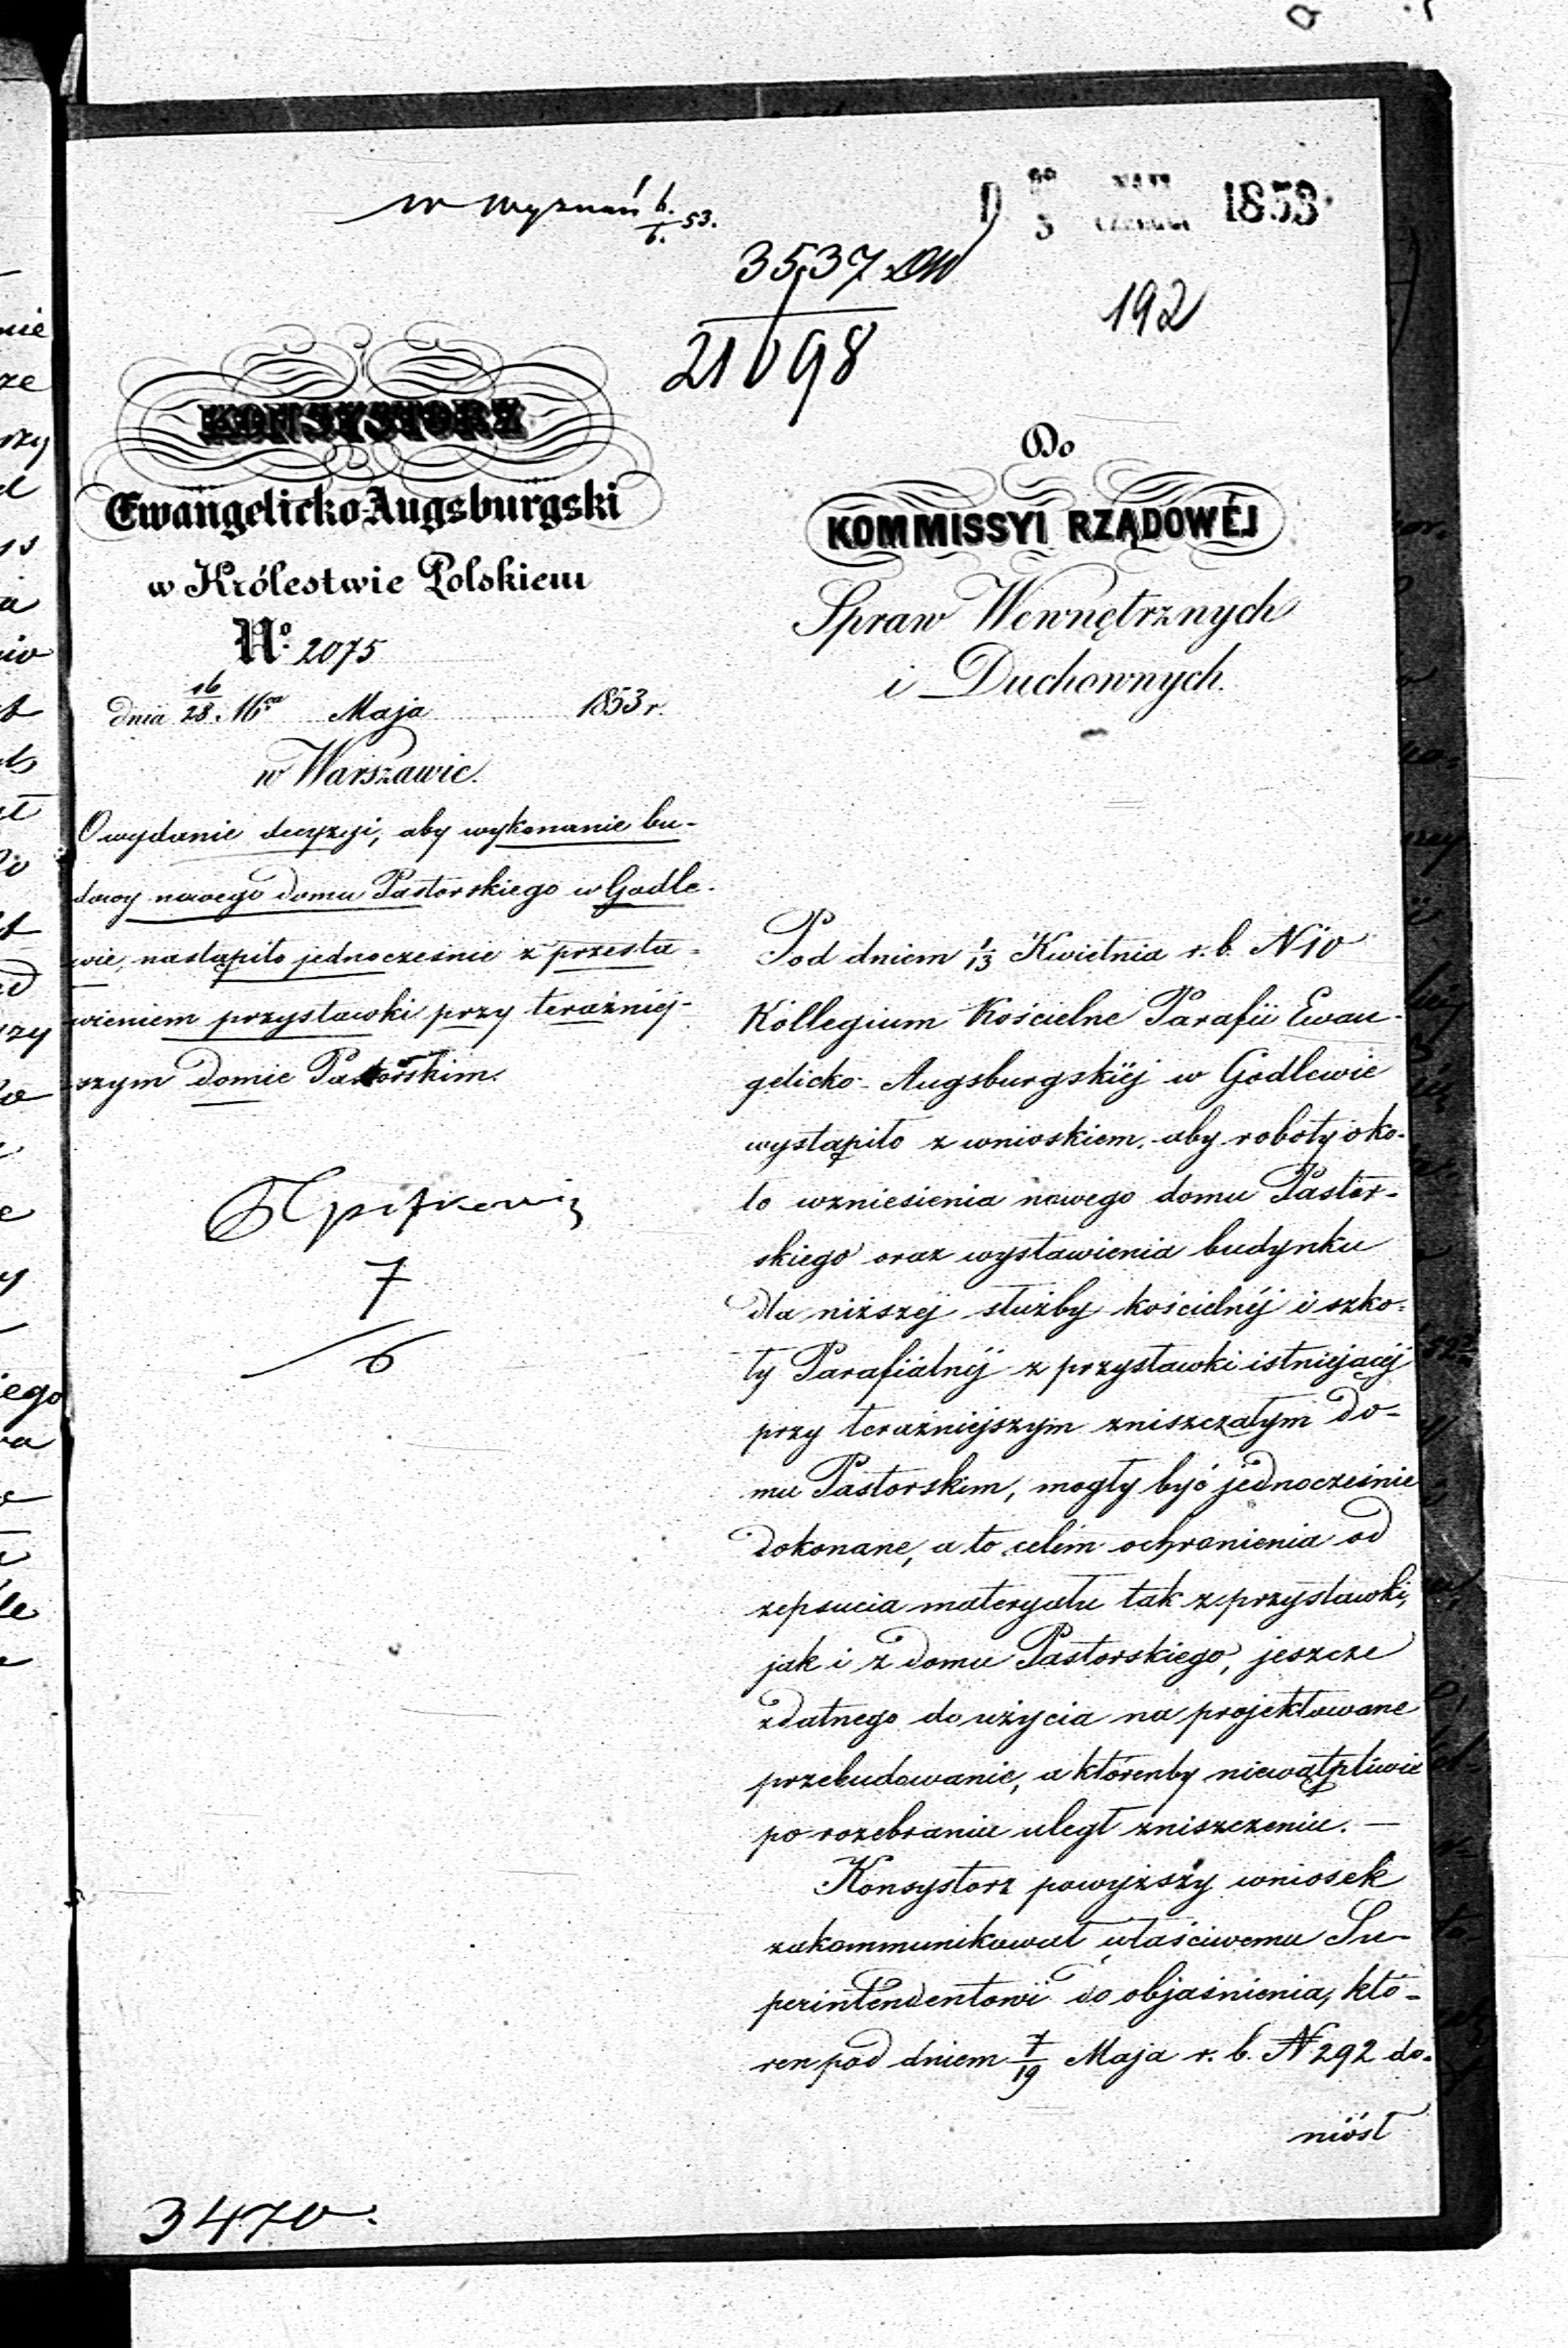 w Wyznań 6./6. 53.
D 1853
3537
21698
192
KONSYSTORZ
Ewangelicko-Augsburgski
w Królestwie Polskiem
No. 2075
dnia 16/28. Maja 1853 r.
w Warszawie.
O wydanie decyzyi, aby wykonanie bu-
dowy nowego domu Pastorskiego w Godle-
wie, nastąpiło jednocześnie z przesta-
wieniem przystawki przy teraźniej-
szym domie Pastorskim.
7
6
Do
KOMMISSYI RZĄDOWÉJ
Spraw Wewnętrznych
i Duchownych.
Pod dniem 1/13 Kwietnia r. b. N 10
Kollegium Kościelne Parafii Ewan-
gelicko-Augsburgskiéj w Godlewie
wystąpiło z wnioskiem, aby roboty oko-
ło wzniesienia nowego domu Pastor-
skiego oraz wystawienia budynku
dla niższej służby kościelnéj i szko-
ły Parafialnéj z przystawki istniejącéj
przy teraźniejszym zniszczałym do-
mu Pastorskim, mogły być jednocześnie
dokonane, a to celem ochronienia od
zepsucia materyału tak z przystawki,
jak i z domu Pastorskiego, jeszcze
zdatnego do użycia na projektowane
przebudowanie, a którenby niewątpliwie
po rozebraniu uległ zniszczeniu. —
Konsystorz powyższy wniosek
zakommunikował właściwemu Su-
perintendentowi do objaśnienia, któ-
ren pod dniem 7/19 Maja r. b. N 292 do-
niósł
3470.